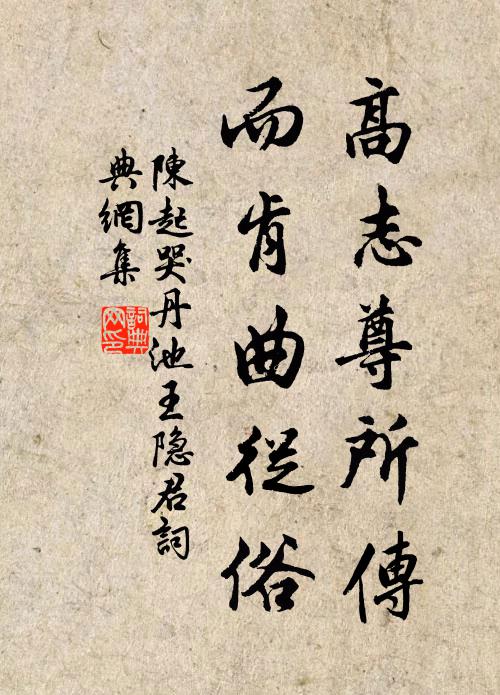 高志尊所傳
而肯曲從俗
陳起哭丹池王隐君詞
典網集
詞典
网印